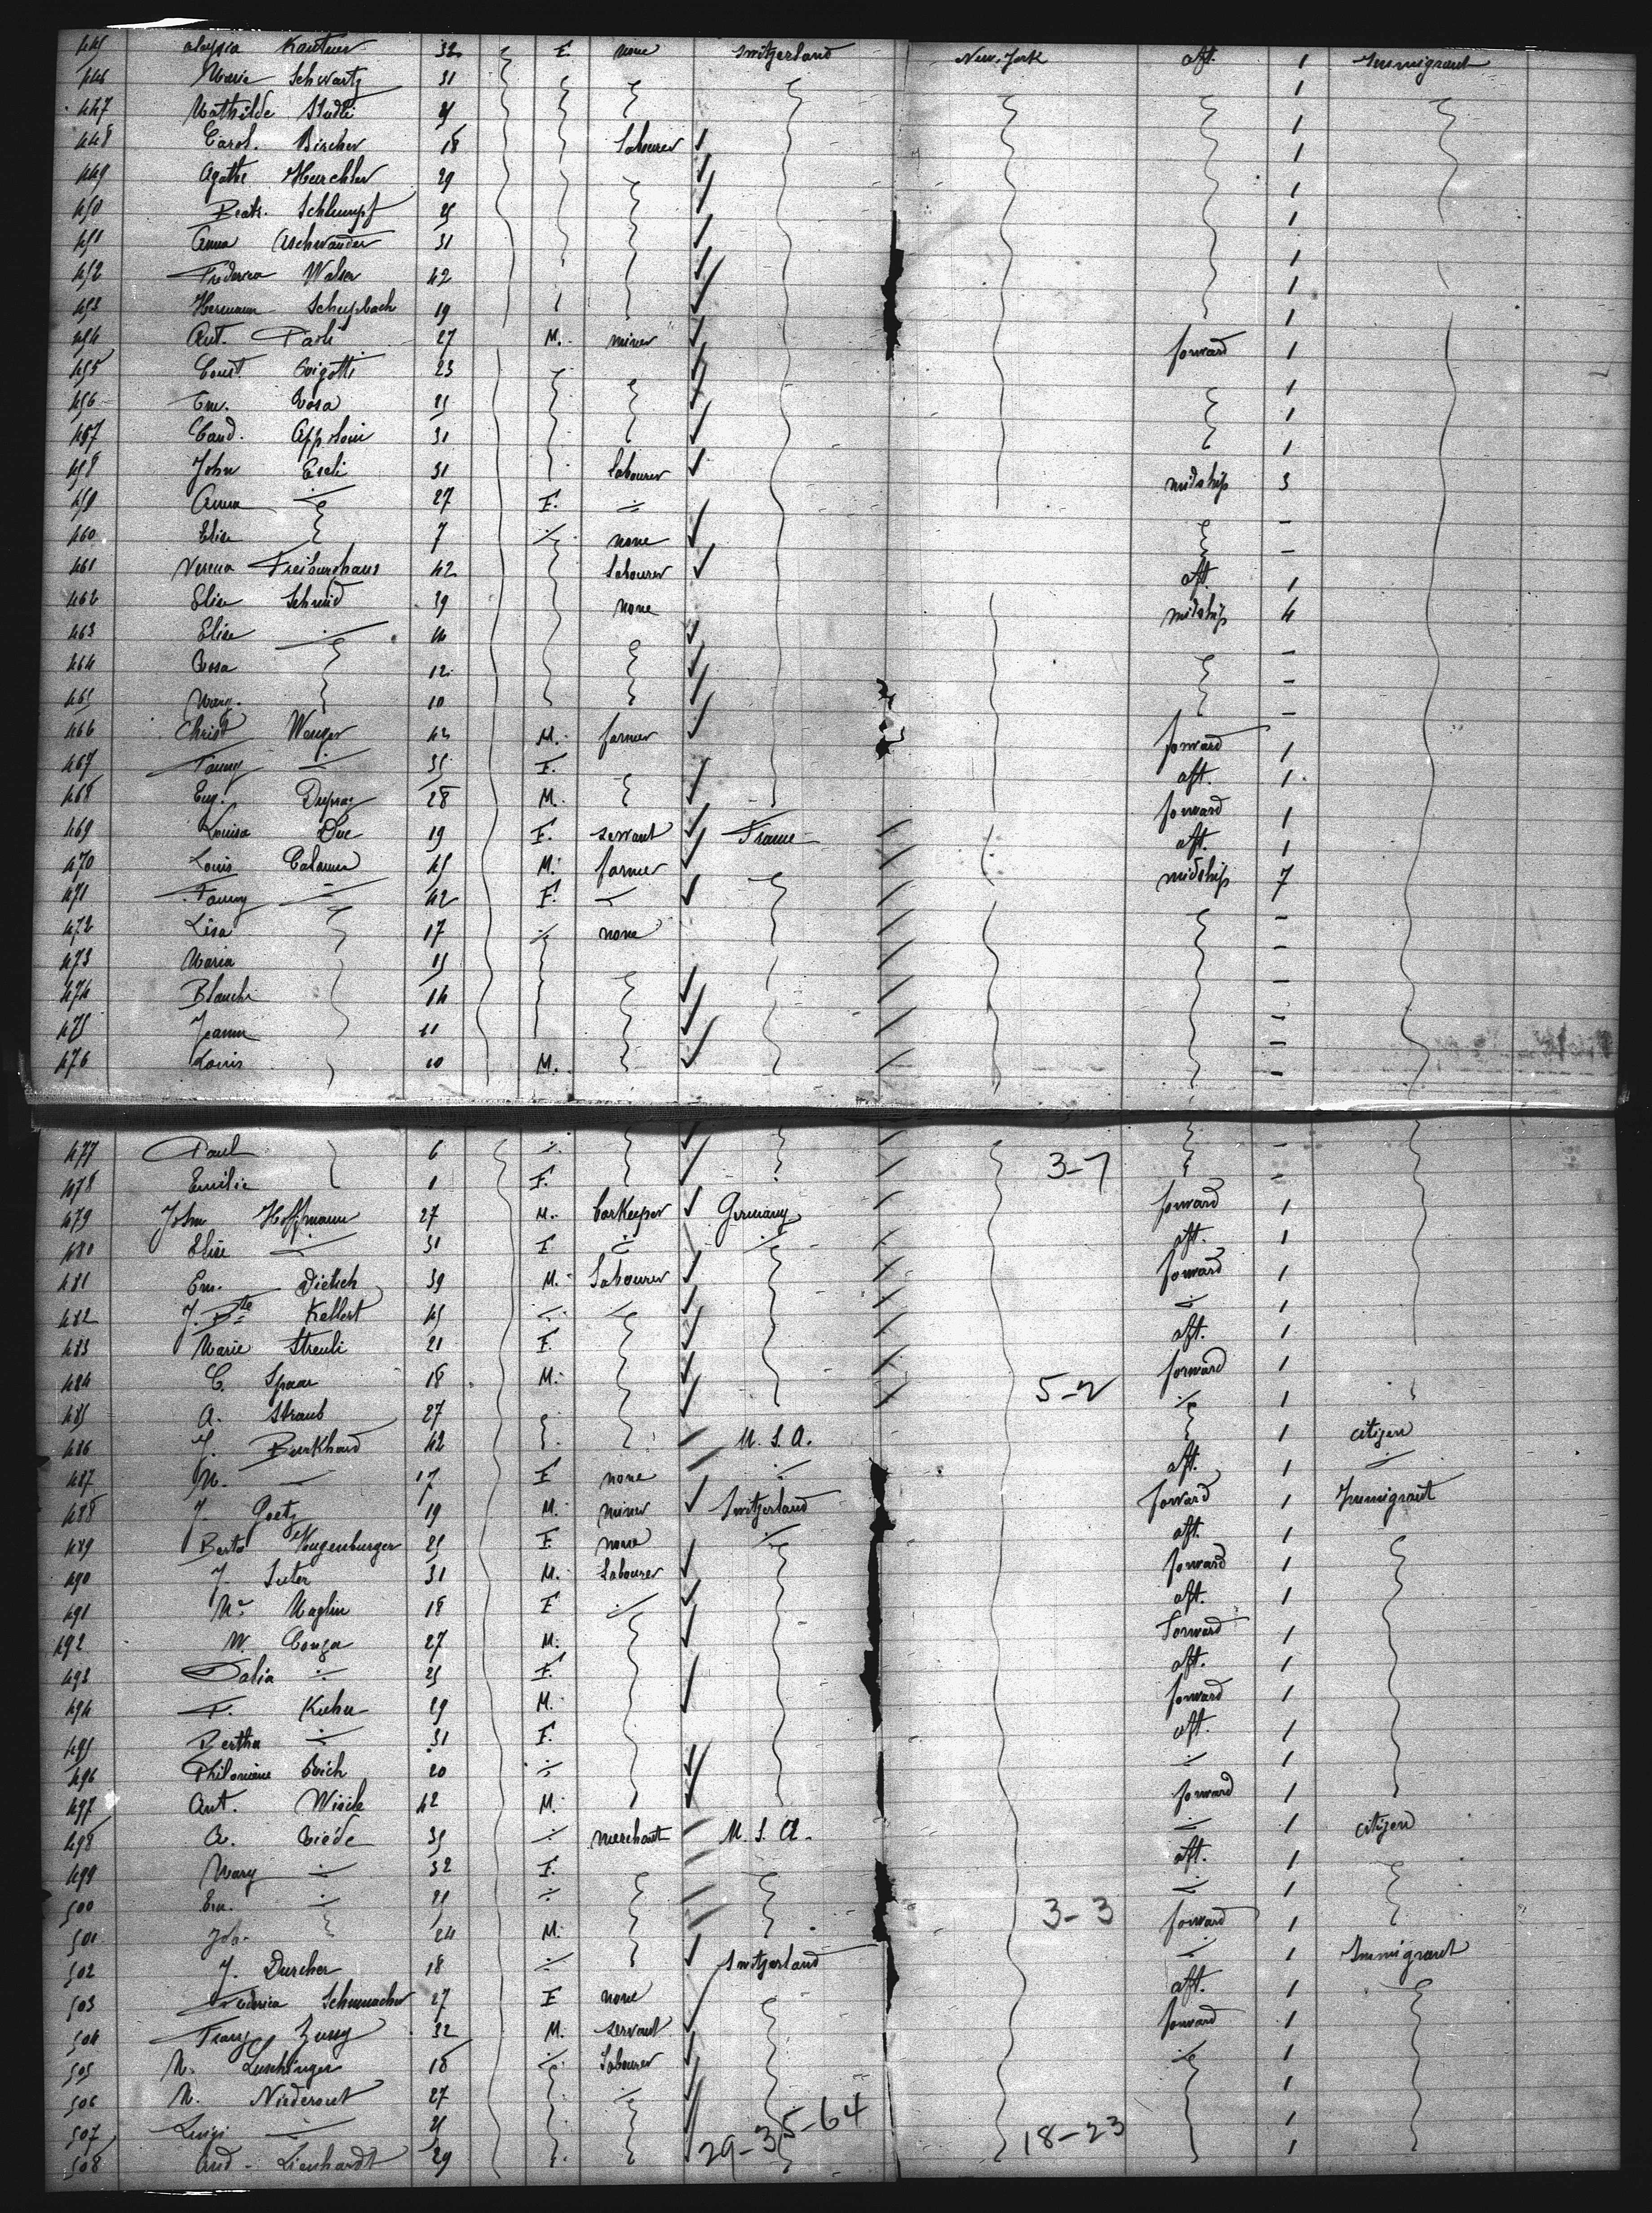 445 Aloysia Kautner 32 F. none Switzerland New-York aft. 1 Immigrant
446 Marie Schwartz 31 1
447 Mathilde Studli 1
448 Carol. Bircher 18 Labourer 1
449 Agatha 29 1
450 Beatr. Schlumpf 25 1
451 Anna Aschwander 31 1
452 Frederica Walser 42 1
453 Hermann Schupbach 19 1
454 Ant. Paoli 27 M. miner forward 1
455 Const. 23 1
456 Em. Rosa 25 1
457 Cand. Appoloni 31 1
458 John Esch 31 Labourer midship 3
459 Anna ÷ 27 F. ÷ -
460 Elise 7 ÷ none -
461 Verena Freiburghaus 42 Labourer aft. 1
462 Elise Schmid 39 none midship 4
463 Elise ÷ 14 -
464 Rosa 12 -
465 10 -
466 Christ Wenger 43 M. farmer forward 1
467 Fanny ÷ 35 F. aft. 1
468 Eug. Dupraz 28 M. forward 1
469 Louisa Due 19 F. servant France aft. 1
470 Louis Calame 45 M. farmer midship 7
471 Fanny ÷ 42 F. ÷ -
472 Lisa 17 ÷ none -
473 Maria 15 -
474 Blanche 14 -
475 Jeanne 11 -
476 Louis 10 M. -
477 Paul 6 ÷ 3-7 -
478 Emilie 1 F. -
479 John Hoffmann 27 M. barkeeper Germany forward 1
480 Elise ÷ 31 F ÷ ÷ aft. 1
481 Em. Dietsch 39 M. Labourer forward 1
482 J. Bte Kellert 45 ÷ ÷ ÷ 1
483 Marie Streuli 21 F. aft. 1
484 C. Spaar 18 M. forward 1
485 A. Straub 27 5-2 ÷ 1
486 J. Burkhard 42 U. S. A. 1 citizen
487 M. — 17 F none ÷ aft. 1 ÷
488 J. Goetz 19 M. miner Switzerland forward 1 Immigrant
489 Berta 25 F none ÷ aft. 1
490 J. Suter 31 M. Labourer forward 1
491 Ma Maglin 18 F ÷ aft. 1
492 W. Conza 27 M. Forward 1
493 Dalia ÷ 25 F. aft. 1
494 F. Kuhn 29 M. forward 1
495 Bertha ÷ 31 F. aft. 1
496 Philomene 20 ÷ ÷ 1
497 Ant. 42 M. forward 1
498 A. Riède 35 ÷ merchant U. S. A. ÷ 1 citizen
499 Mary ÷ 32 F. aft. 1
500 Em. ÷ ÷ ÷ 1
501 Joh. 24 M. 3-3 forward 1
502 J. Durcher 18 ÷ Switzerland ÷ 1 Immigrant
503 Frederica Schumacher 27 F none aft. 1
504 Franz 32 M. servant forward 1
505 M. Luchsinger 18 ÷ Labourer ÷ 1
506 M. Niederost 27 ÷ 1
507 Luigi ÷ 1
508 And. Lienhardt 29 29-35-64 18-23 1